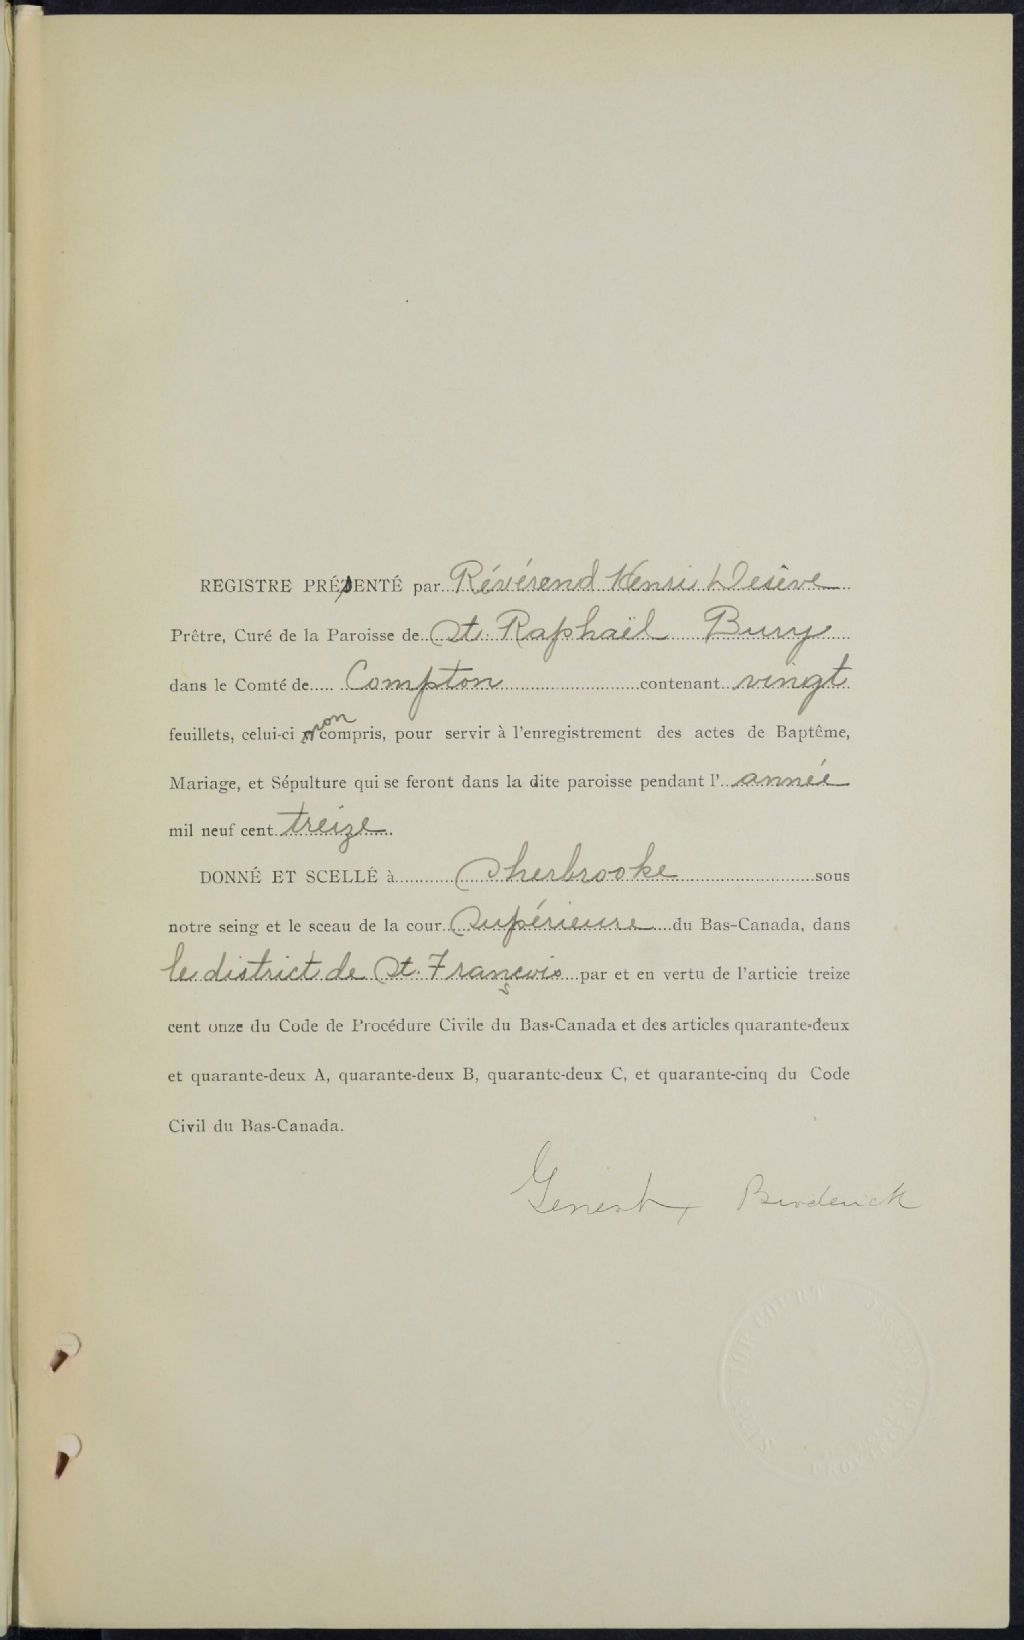 REGISTRE PRÉSENTÉ par Révérend Henri Desève
Prêtre, Curé de la Paroisse de St. Raphaël Bury
dans le Comté de Compton contenant vingt
feuillets, celui-ci non compris, pour servir à l'enregistrement des actes de Baptême,
Mariage, et Sépulture qui se feront dans la dite paroisse pendant l'année
mil neuf cent treize.
DONNÉ ET SCELLÉ à Sherbrooke sous
notre seing et le sceau de la cour Supérieure du Bas-Canada, dans
le district de St. François par et en vertu de l'articie treize
cent onze du Code de Procédure Civile du Bas-Canada et des articles quarante-deux
et quarante-deux A, quarante-deux B, quarante-deux C, et quarante-cinq du Code
Civil du Bas-Canada.
Genest & Broderick
SUPERIOR COURT
PROVINCE